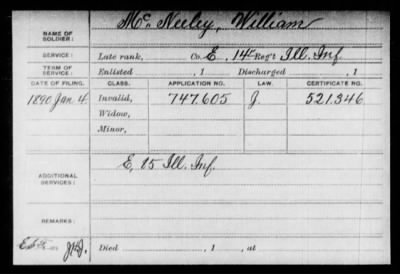 NAME OF SOLDIER: Mc. Neeley, William
SERVICE: Late rank, Co. E, 14 Reg't Ill. Inf.
TERM OF SERVICE: Enlisted , 1 Discharged , 1
DATE OF FILING. CLASS. APPLICATION NO. LAW. CERTIFICATE NO.
1890 Jan. 4. Invalid, 747.605 J. 521.346
Widow,
Minor,
ADDITIONAL SERVICES: E, 15 Ill. Inf.
REMARKS:
Died , 1 , at